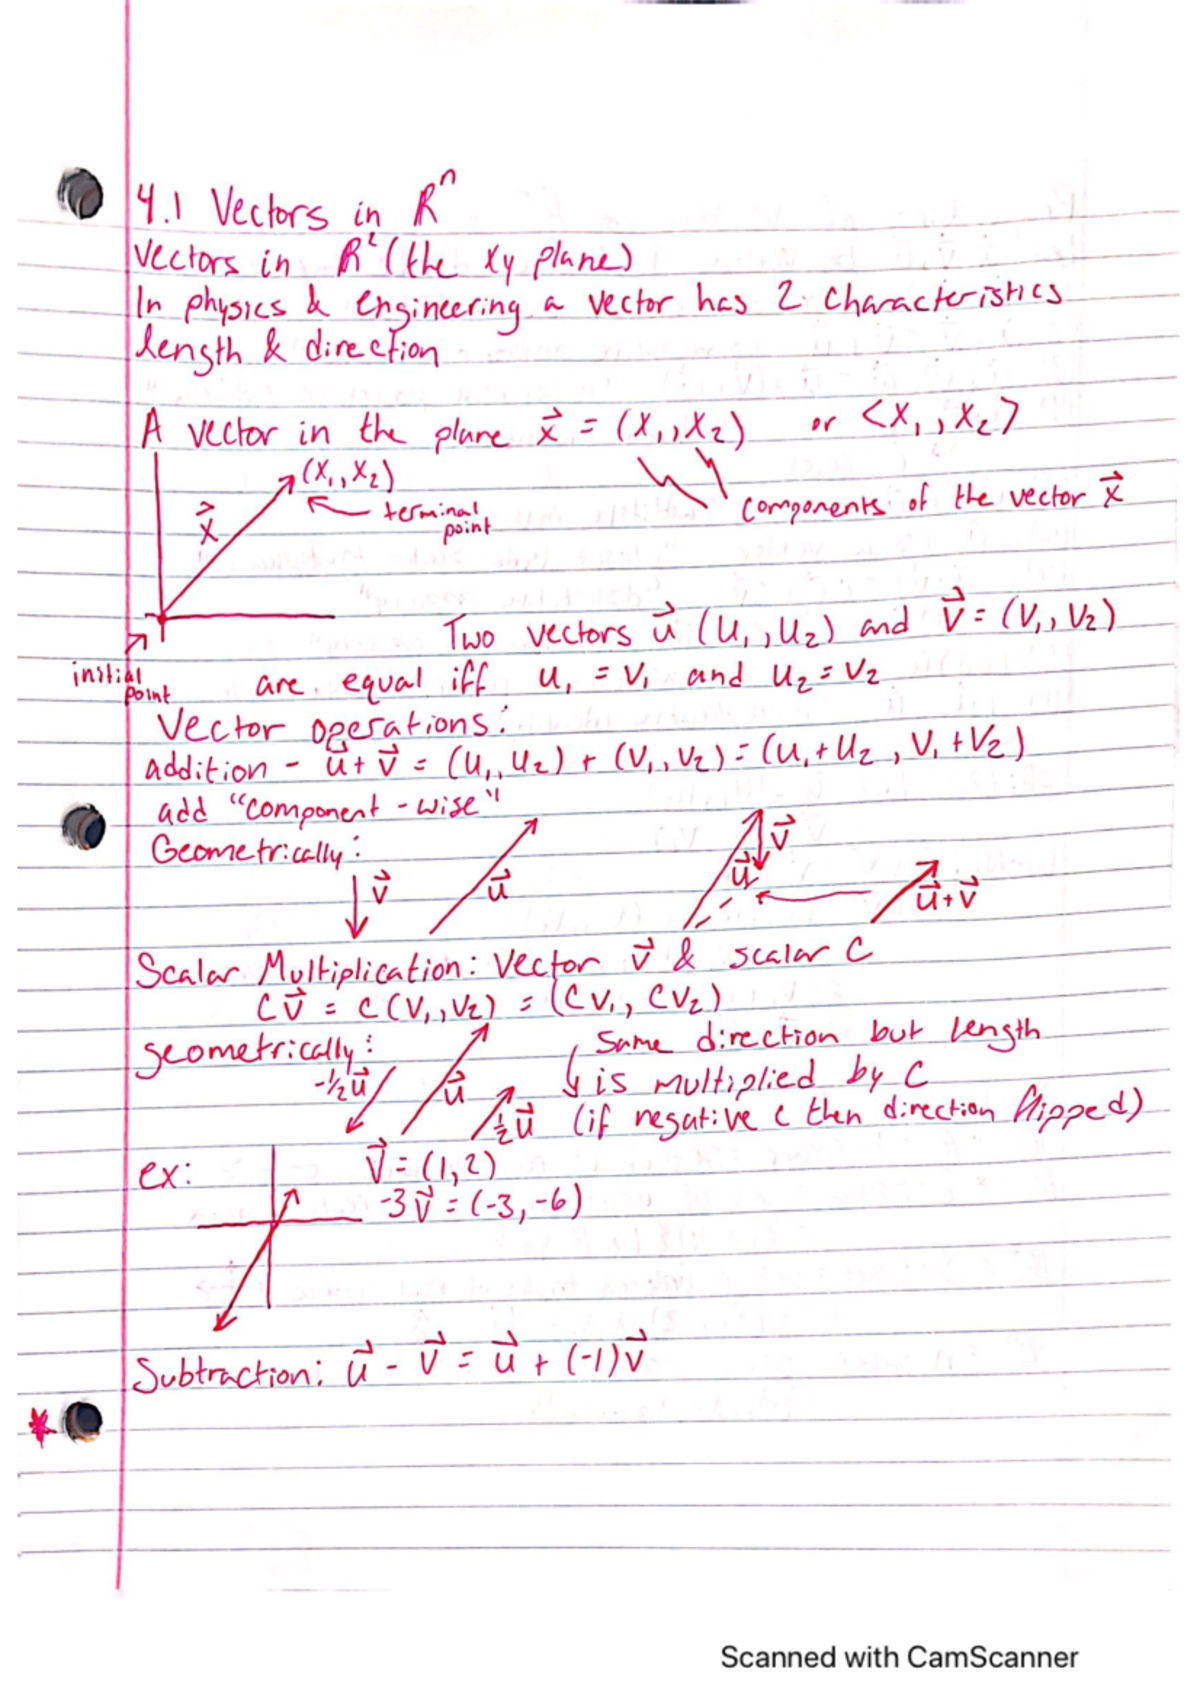 4.1 Vectors in Rⁿ
Vectors in R² (the xy plane)
In physics & engineering a vector has 2 characteristics
length & direction
A vector in the plane x⃗ = (x₁, x₂) or <x₁, x₂>
(x₁, x₂)
x⃗
terminal
point
components of the vector x⃗
initial
point
Two vectors u⃗ (u₁, u₂) and v⃗ = (v₁, v₂)
are equal iff u₁ = v₁ and u₂ = v₂
Vector operations:
addition - u⃗ + v⃗ = (u₁, u₂) + (v₁, v₂) = (u₁ + u₂, v₁ + v₂)
add "component - wise"
Geometrically:
v⃗
u⃗
u⃗
v⃗
u⃗ + v⃗
Scalar Multiplication: Vector v⃗ & scalar c
cv⃗ = c(v₁, v₂) = (cv₁, cv₂)
geometrically:
-½u⃗
u⃗
½u⃗
Same direction but length
is multiplied by c
(if negative c then direction flipped)
ex:
v⃗ = (1, 2)
-3v⃗ = (-3, -6)
Subtraction: u⃗ - v⃗ = u⃗ + (-1)v⃗
Scanned with CamScanner